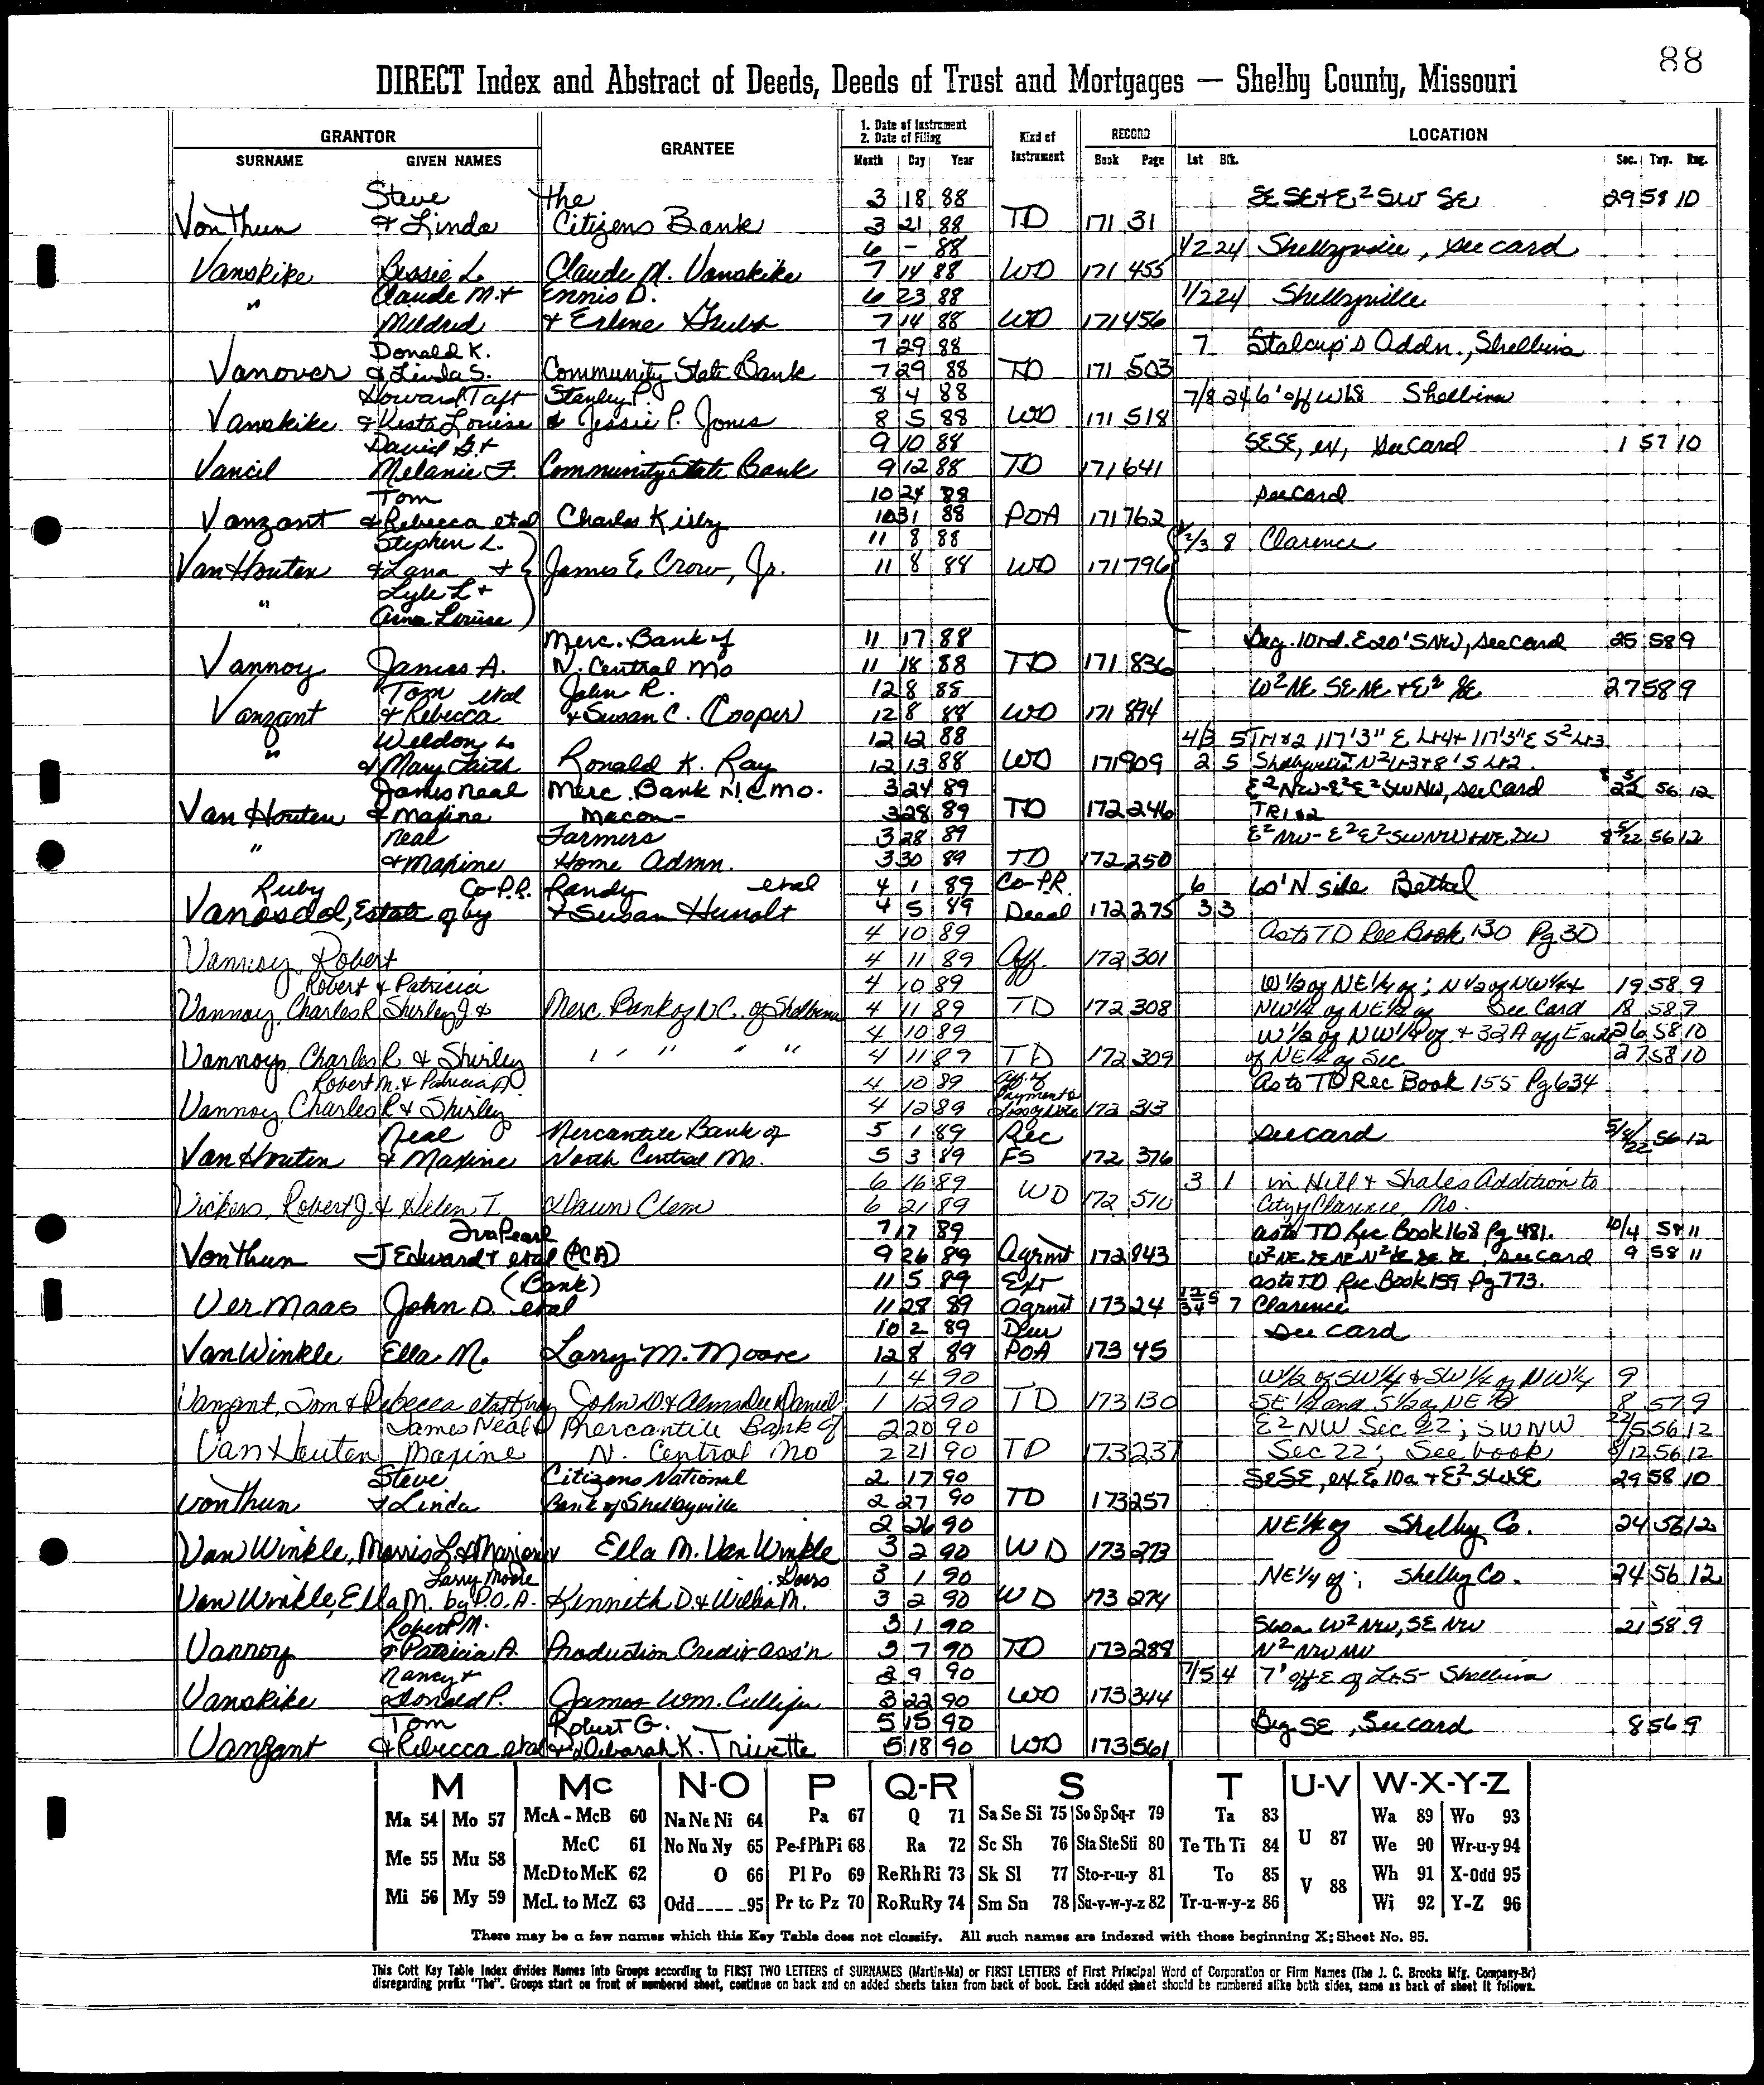 88
DIRECT Index and Abstract of Deeds, Deeds of Trust and Mortgages — Shelby County, Missouri
GRANTOR GRANTEE 1. Date of Instrument 2. Date of Filing Kind of Instrument RECORD LOCATION
SURNAME GIVEN NAMES Month Day Year Book Page Lot Blk. Sec. Twp. Rng.
Steve the 3 18 88 SE SE+E² SW SE 29 58 10
VonThun & Linda Citizens Bank 3 21 88 TD 171 31
6 - 88 1/2 24 Shelbyville, see card
Vanskike Bessie L. Claude M. Vanskike 7 14 88 WD 171 455
Claude M. + Ennis D. 6 23 88 1/2 24 Shelbyville
" Mildred & Erlene 7 14 88 WD 171 456
Donald K. 7 29 88 7 Stalcup's Addn., Shelbina
Vanover & Linda S. Community State Bank 7 29 88 TD 171 503
Howard Taft Stanley P. 8 4 88 7/8 24 6' off W Shelbina
Vanskike & Kesta Louise & Jessie P. Jones 8 5 88 WD 171 518
David G. + 9 10 88 SESE, ex, see card 1 57 10
Vancil Melanie F. Community State Bank 9 12 88 TD 171 641
Tom 10 24 88 see card
Vanzant & Rebecca etal Charles Kirby 10 31 88 POA 171 762
Stephen L. 11 8 88 2/3 8 Clarence
VanHouten & Lana + James E. Crow, Jr. 11 8 88 WD 171 796
" Lyle L +
Anna Louise
Merc. Bank of 11 17 88 Beg. 10rd. E 20' S NW, see card 25 58 9
Vannoy James A. N. Central Mo 11 18 88 TD 171 836
Tom etal John R. 12 8 88 W² NE SE NE + E² SE 27 58 9
Vanzant & Rebecca & Susan C. (Cooper) 12 8 88 WD 171 894
Weldon L 12 12 88 4/3 5 Tr 1+2 117'3" E Lt 4+ 117'3" E S² Lt 3
" & Mary Faith Ronald K. Ray 12 13 88 WD 171 909 2 5 Shelbyville N² Lt 3+8' S Lt 2.
James Neal Merc. Bank N.C. Mo. 3 24 89 E² NW-E²E² SWNW, see card 56 12
Van Houten & Maxine Macon- 3 28 89 TD 172 246 TR 1+2
" Neal Farmers 3 28 89 56 12
& Maxine Home Admn. 3 30 89 TD 172 250
Ruby Co-P.R. Randy etal 4 1 89 Co-P.R. 6 60' N side Bethel
Vanosdol, Estate of by & Susan Hunolt 4 5 89 Deed 172 275 3 3
4 10 89 As to TD Rec Book 130 Pg 30
Vannoy Robert 4 11 89 Aff. 172 301
Robert & Patricia 4 10 89 W 1/2 of NE 1/4 of; N 1/2 of NW 1/4 + 19 58 9
Vannoy, Charles R Shirley J. & Merc. Bank of N.C. of Shelbina 4 11 89 TD 172 308 NW 1/4 of NE 1/4 of See Card 18 58 9
4 10 89 W 1/2 of NW 1/4 of + 32A off E side 26 58 10
Vannoy, Charles R. & Shirley " " " " 4 11 89 TD 172 309 of NE 1/4 of Sec 27 58 10
Robert M. & Patricia A. 4 10 89 Aff. of As to TD Rec Book 155 Pg 634
Vannoy Charles R & Shirley 4 12 89 Payment & Loss of Note 172 313
Neal Mercantile Bank of 5 1 89 Rec see card 56 12
VanHouten & Maxine North Central Mo. 5 3 89 FS 172 376
6 16 89 3 1 in Hill & Shales Addition to
Vickers, Robert J. & Helen T. Dawn Clem 6 21 89 WD 172 510 City of Clarence, Mo.
Iva Pearl 7 17 89 as to TD Rec Book 168 Pg 481. 10/4 58 11
VonThun J Edward & etal (PCA) 9 26 89 Agrmt 172 843 see card 9 58 11
(Bank) 11 5 89 Ext as to TD Rec Book 159 Pg 773.
Ver Maas John D. etal 11 28 89 Agrmt 173 24 7 Clarence
10 2 89 Dur see card
VanWinkle Ella M. Larry M. Moore 12 8 89 POA 173 45
1 4 90 W 1/2 of SW 1/4 & SW 1/4 of NW 1/4 9
Vanzant, Tom & Rebecca John D. & Alma Dee Daniel 1 12 90 TD 173 130 SE 1/4 and S 1/2 of NE 1/4 8 57 9
James Neal & Mercantile Bank of 2 20 90 E² NW Sec 22; SWNW 56 12
Van Houten Maxine N. Central Mo 2 21 90 TD 173 237 Sec 22; See book 56 12
Steve Citizens National 2 17 90 SESE, ex E 10a + E² SWSE 29 58 10
VonThun & Linda Bank of Shelbyville 2 27 90 TD 173 257
2 26 90 NE 1/4 of Shelby Co. 24 56 12
Van Winkle, Morris L. & Marjorie Ella M. Van Winkle 3 2 90 WD 173 273
Larry Moore Goers 3 1 90 NE 1/4 of; Shelby Co. 24 56 12
Van Winkle, Ella M. by P.O.A. Kenneth D. & Willa M. 3 2 90 WD 173 274
Robert M. 3 1 90 W² NW, SE NW 21 58 9
Vannoy & Patricia A. Production Credit Ass'n 3 7 90 TD 173 288 N² NW NW
Nancy + 3 9 90 7/5 4 7' off E of Lt 5 - Shelbina
Vanskike Donald P. James Wm. Culligan 3 22 90 WD 173 344
Tom Robert G. 5 15 90 Beg. SE, See card 8 56 9
Vanzant & Rebecca etal & Deborah K. Trivette 5 18 90 WD 173 561
M Mc N-O P Q-R S T U-V W-X-Y-Z
Ma 54 Mo 57 McA - McB 60 Na Ne Ni 64 Pa 67 Q 71 Sa Se Si 75 So Sp Sq-r 79 Ta 83 Wa 89 Wo 93
McC 61 No Nu Ny 65 Pe-f Ph Pi 68 Ra 72 Sc Sh 76 Sta Ste Sti 80 Te Th Ti 84 U 87 We 90 Wr-u-y 94
Me 55 Mu 58 McD to McK 62 O 66 Pl Po 69 Re Rh Ri 73 Sk Sl 77 Sto-r-u-y 81 To 85 Wh 91 X-Odd 95
Mi 56 My 59 McL to McZ 63 Odd 95 Pr to Pz 70 Ro Ru Ry 74 Sm Sn 78 Su-v-w-y-z 82 Tr-u-w-y-z 86 V 88 Wi 92 Y-Z 96
There may be a few names which this Key Table does not classify. All such names are indexed with those beginning X; Sheet No. 95.
This Cott Key Table Index divides Names Into Groups according to FIRST TWO LETTERS of SURNAMES (Martin-Ma) or FIRST LETTERS of First Principal Word of Corporation or Firm Names (The J. C. Brooks Mfg. Company-Br)
disregarding prefix "The". Groups start on front of numbered sheet, continue on back and on added sheets taken from back of book. Each added sheet should be numbered alike both sides, same as back of sheet it follows.